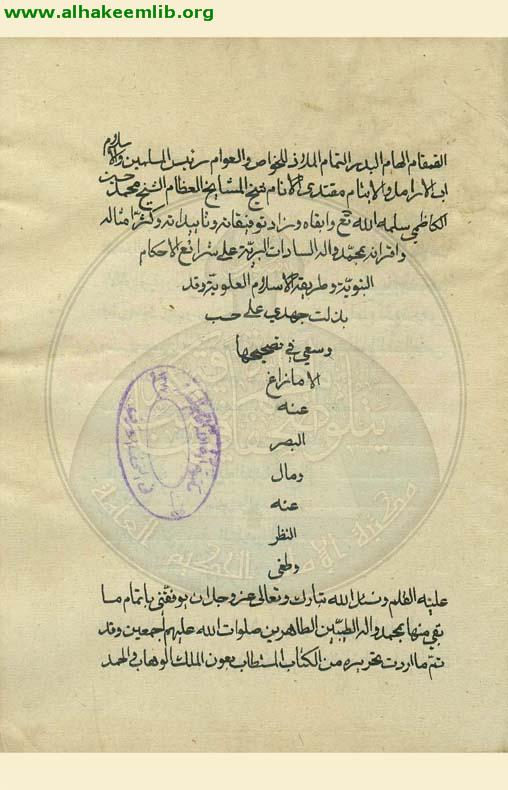 www.alhakeemlib.org
القمقام الهمام البدر التمام الملاذ للخواص والعوام رئيس المسلمين والاسلام
اب الارامل والايتام مقتدى الانام شيخ المشايخ العظام الشيخ محمد حسين
الكاظمي سلمه الله تع وابقاه وزاد توفيقاته وتاييداته وكثر امثاله
واقرانه بمحمد واله السادات البرية على شرائع الاحكام
النبويّة وطريقة الاسلام العلويّة وقد
بذلت جهدي على حسب
وسعي في تصحيحها
الا ما زاغ
عنه
البصر
ومال
عنه
النظر
وطغى
عليه القلم ونسئل الله تبارك وتعالى عز وجل ان يوفقني باتمام ما
بقي منها بمحمد واله الطيّبين الطاهرين صلوات الله عليهم اجمعين وقد
تمّ ما اردت تحريره من الكتاب المستطاب بعون الملك الوهاب والحمد
مكتبة الامام الحكيم العامة